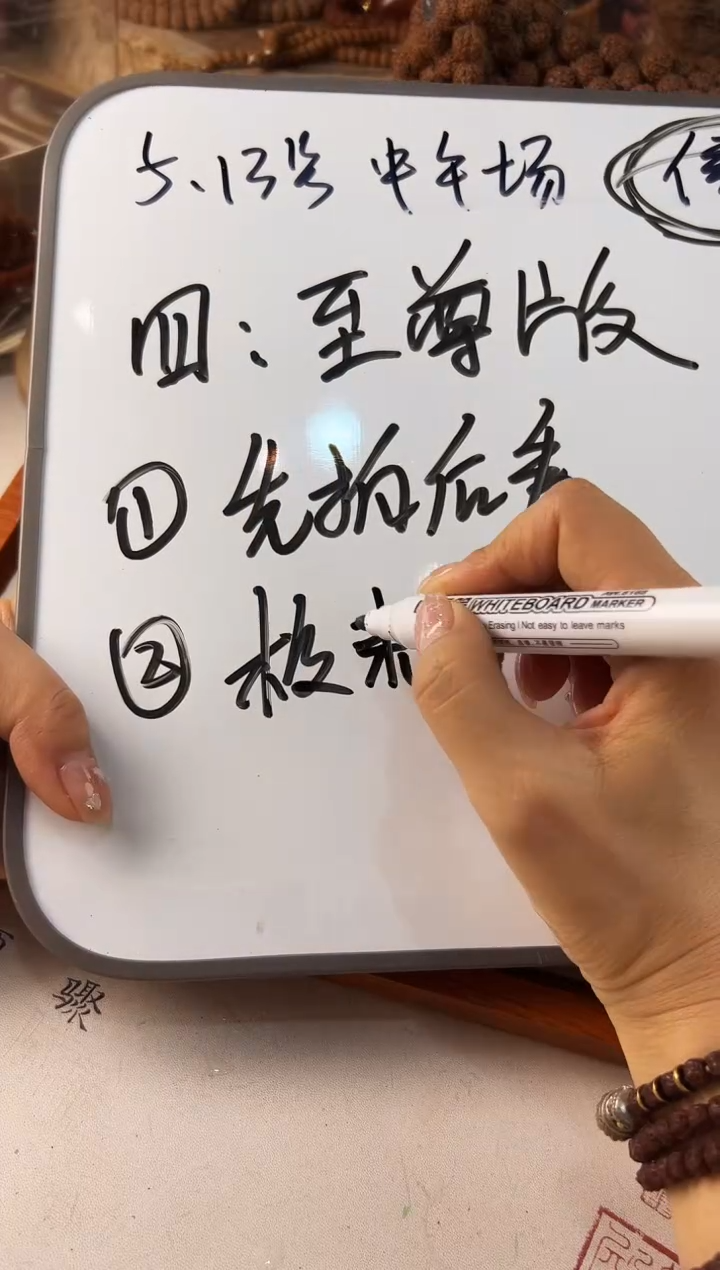 5.13号 中午场
四：至尊版
① 先拍后
② 极
WHITEBOARD MARKER
Erasing | Not easy to leave marks
骤